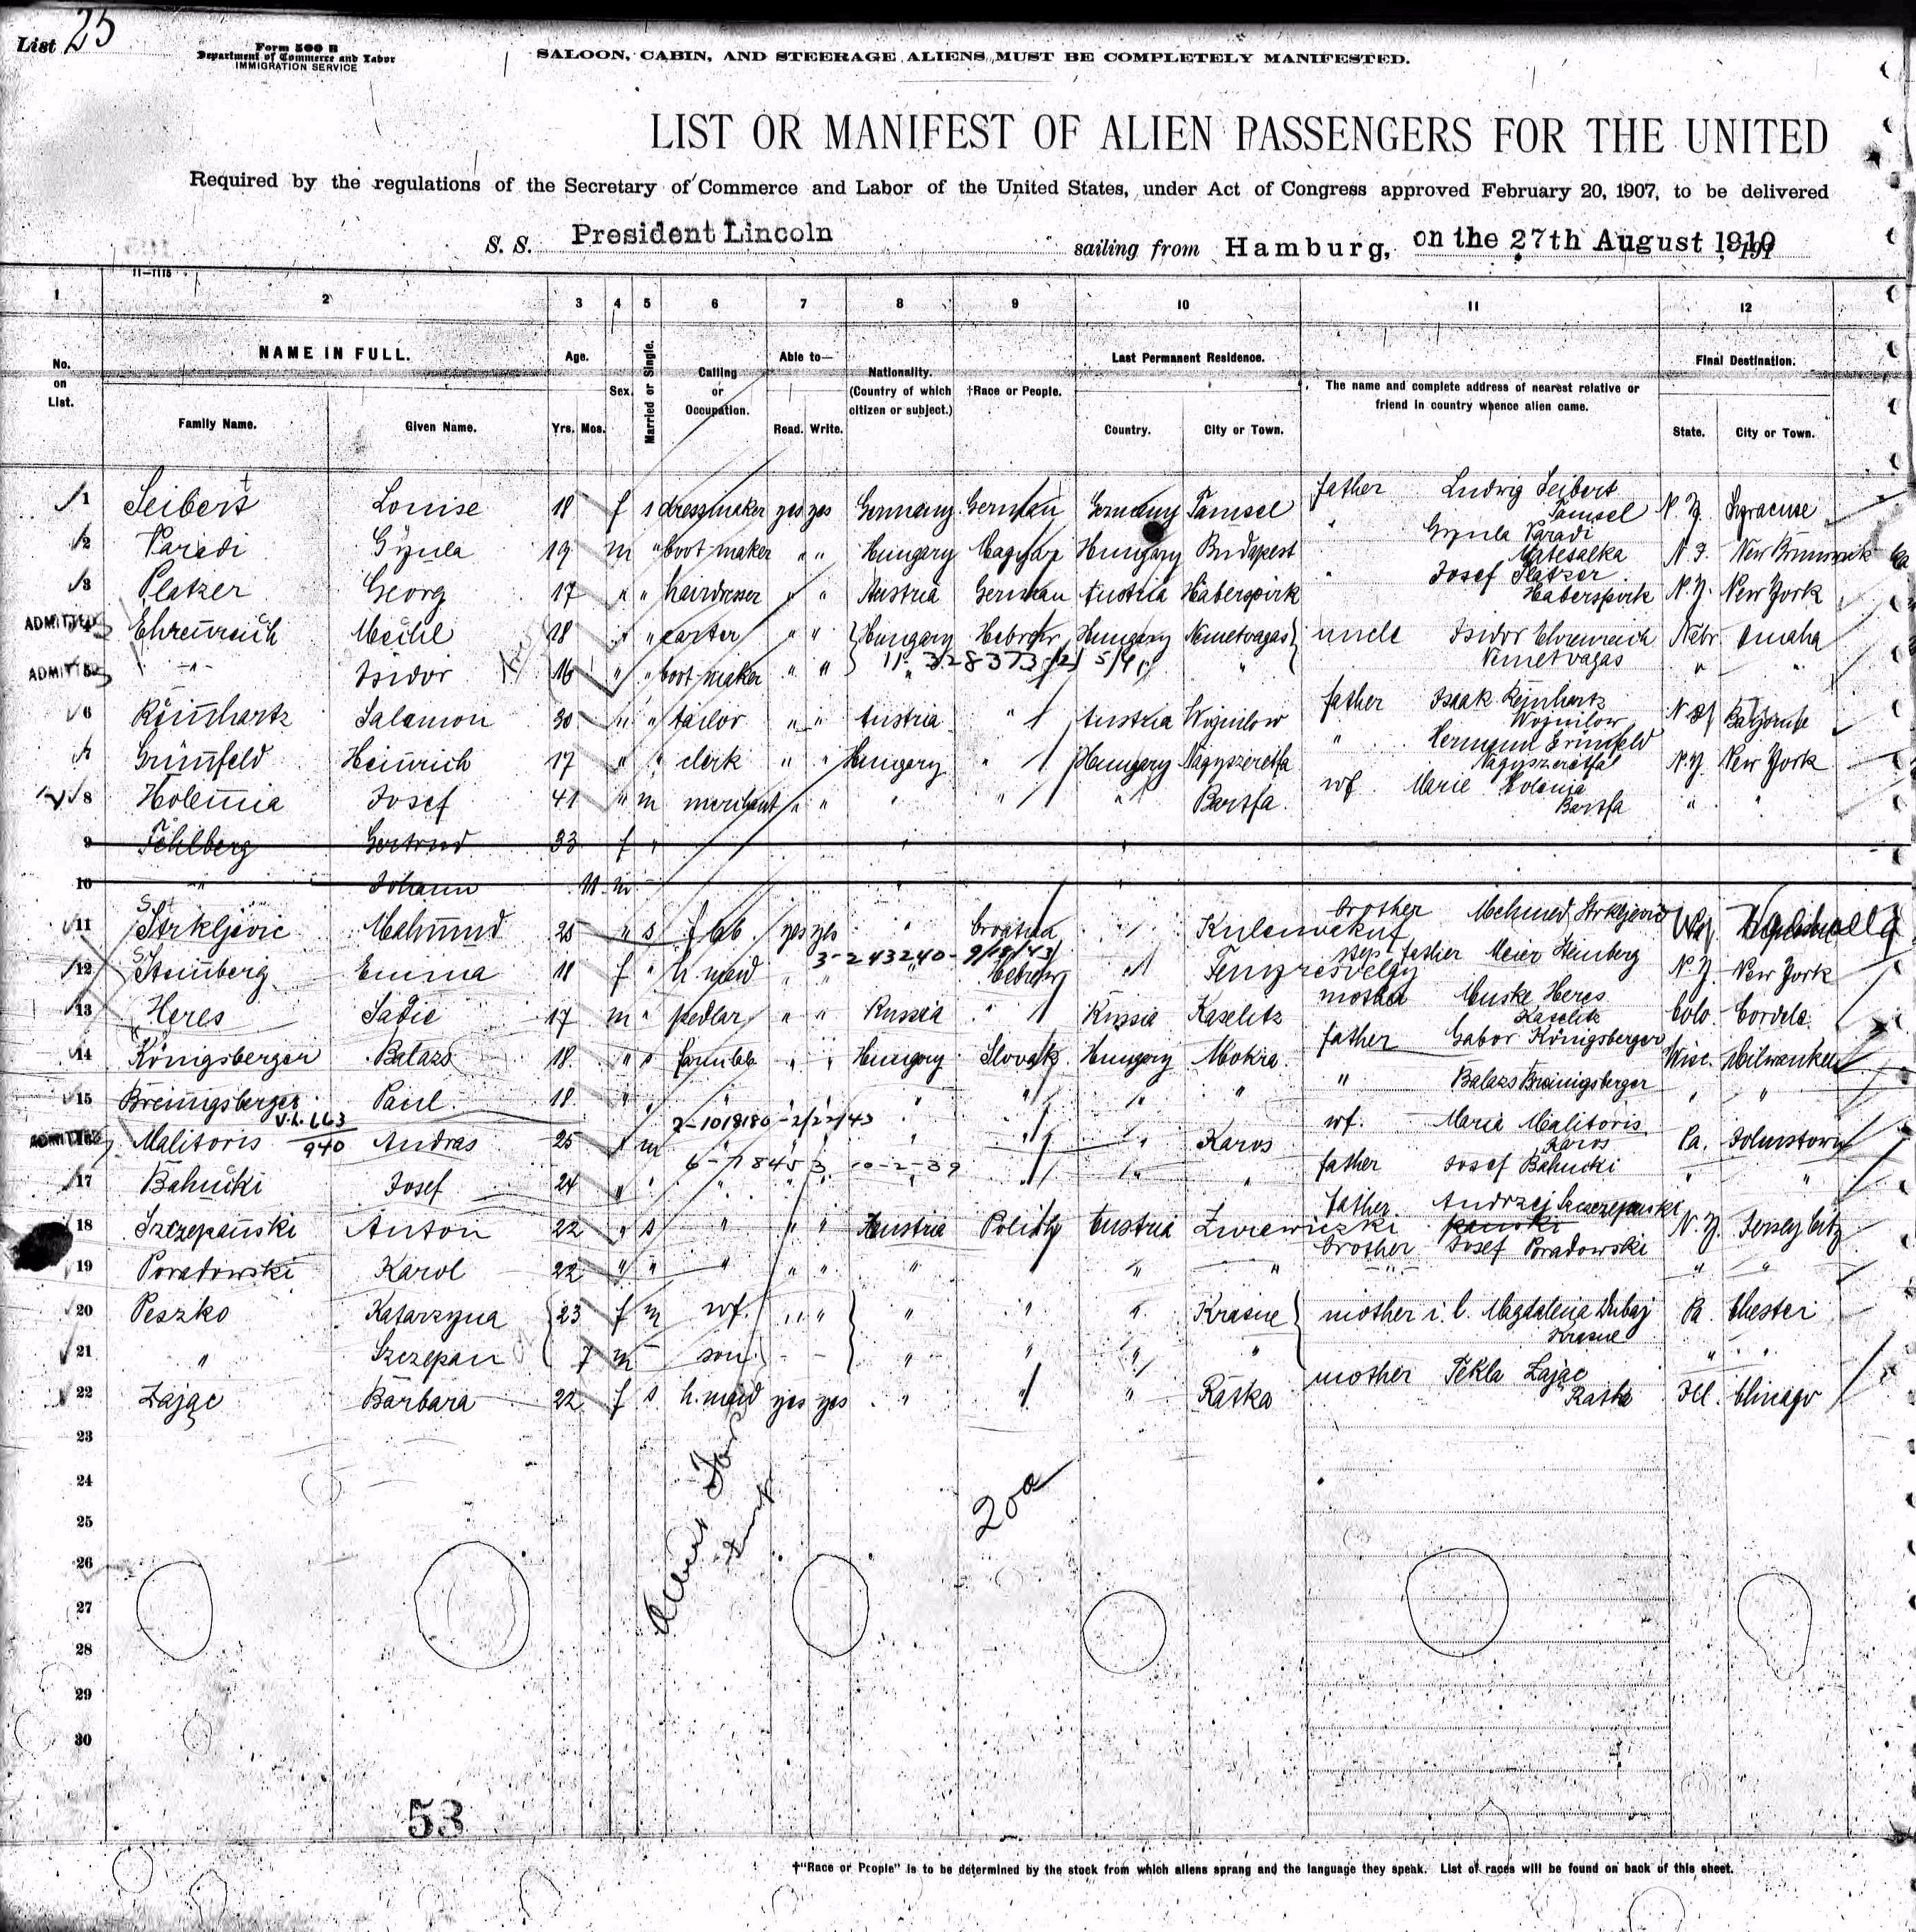 List 25
Form 500 B
Department of Commerce and Labor
IMMIGRATION SERVICE
SALOON, CABIN, AND STEERAGE ALIENS MUST BE COMPLETELY MANIFESTED.
LIST OR MANIFEST OF ALIEN PASSENGERS FOR THE UNITED
Required by the regulations of the Secretary of Commerce and Labor of the United States, under Act of Congress approved February 20, 1907, to be delivered
S. S. President Lincoln sailing from Hamburg, on the 27th August 1910 191
11—1115
1 2 3 4 5 6 7 8 9 10 11 12
No. on List. NAME IN FULL. Age. Sex. Married or Single. Calling or Occupation. Able to— Nationality. (Country of which citizen or subject.) †Race or People. Last Permanent Residence. The name and complete address of nearest relative or friend in country whence alien came. Final Destination.
Family Name. Given Name. Yrs. Mos. Read. Write. Country. City or Town. State. City or Town.
1 Seibert Louise 18 f s dressmaker yes yes Germany German Germany Tamsel father Ludwig Seibert Tamsel N.Y. Syracuse
2 Paradi Gyula 19 m " boot maker " " Hungary Magyar Hungary Budapest " Gyula Paradi Mateszalka N.J. New Brunswick
3 Platzer Georg 17 " " hairdresser " " Austria German Austria Haberspirk " Josef Platzer Haberspirk N.Y. New York
ADMITTED Ehrenreich Mechl 18 " " carter " " Hungary Hebrew Hungary Nemetvagas uncle Isidor Ehrenreich Nemetvagas Nebr. Omaha
ADMITTED 5 " Isidor 16 " " boot maker " " " " " "
6 Reinhartz Salamon 30 " " tailor " " Austria " Austria Wojnilow father Isaak Reinhartz Wojnilow
7 Grünfeld Heinrich 17 " " clerk " " Hungary " Hungary Nagyszeretfa " Hermann Grünfeld Nagyszeretfa N.Y. New York
8 Holenia Josef 41 " m merchant " " " " " Bartfa wf. Marie Holenia Bartfa " "
9 Fehlberg Gertrud 33 f " " "
10 " Johann 11 m " "
11 Strkljevic Mahmud 25 " s f. lab. yes yes " Croatian " Kulenvakuf brother Mehmed Strkljevic
3-243240- 9/18/43
12 Steinberg Emina 18 f " h. maid " " " Hebrew " step-father Meier Steinberg N.Y. New York
13 Heres Sadie 17 m " pedlar " " Russia " Russia Kaselitz mother Muske Heres Kaselitz Colo.
14 Königsberger Balazs 18 " s farm lab " " Hungary Slovak Hungary Mokra father Gabor Königsberger Wisc. Milwaukee
15 Breinigsberger Paul 18 " " " " " " " " " " Balazs Breinigsberger " "
2-1018180-2/22/43
ADMITTED Malitoris V.L. 663 940 Andras 25 " m " " " " Karos wf. Maria Malitoris Karos Pa. Johnstown
6-718453 10-2-39
17 Bahucki Josef 24 " " " " " " " " " father Josef Bahucki " "
18 Szczepanski Anton 22 " s " " " Austria Polish Austria father Andrzej Szczepanski Jersey City
19 Poradowski Karol 22 " " " " " " " " brother Josef Poradowski " "
20 Peszko Katarzyna 23 f m wf. " " " " " Krasne mother i. l. Magdalena Dubaj Krasne Pa. Chester
21 " Szczepan 7 m – son – – " " " " " "
22 Zając Barbara 22 f s h. maid yes yes " " " Ratka mother Tekla Zając Ratka Ill. Chicago
23
24
25
26
27
28
29
30
200
53
†"Race or People" is to be determined by the stock from which aliens sprang and the language they speak. List of races will be found on back of this sheet.